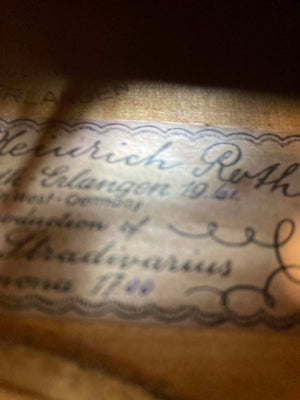 ERLANGEN
Heinrich Roth
Erlangen 1961
West-Germany
roduction of
Stradivarius
mona 1700